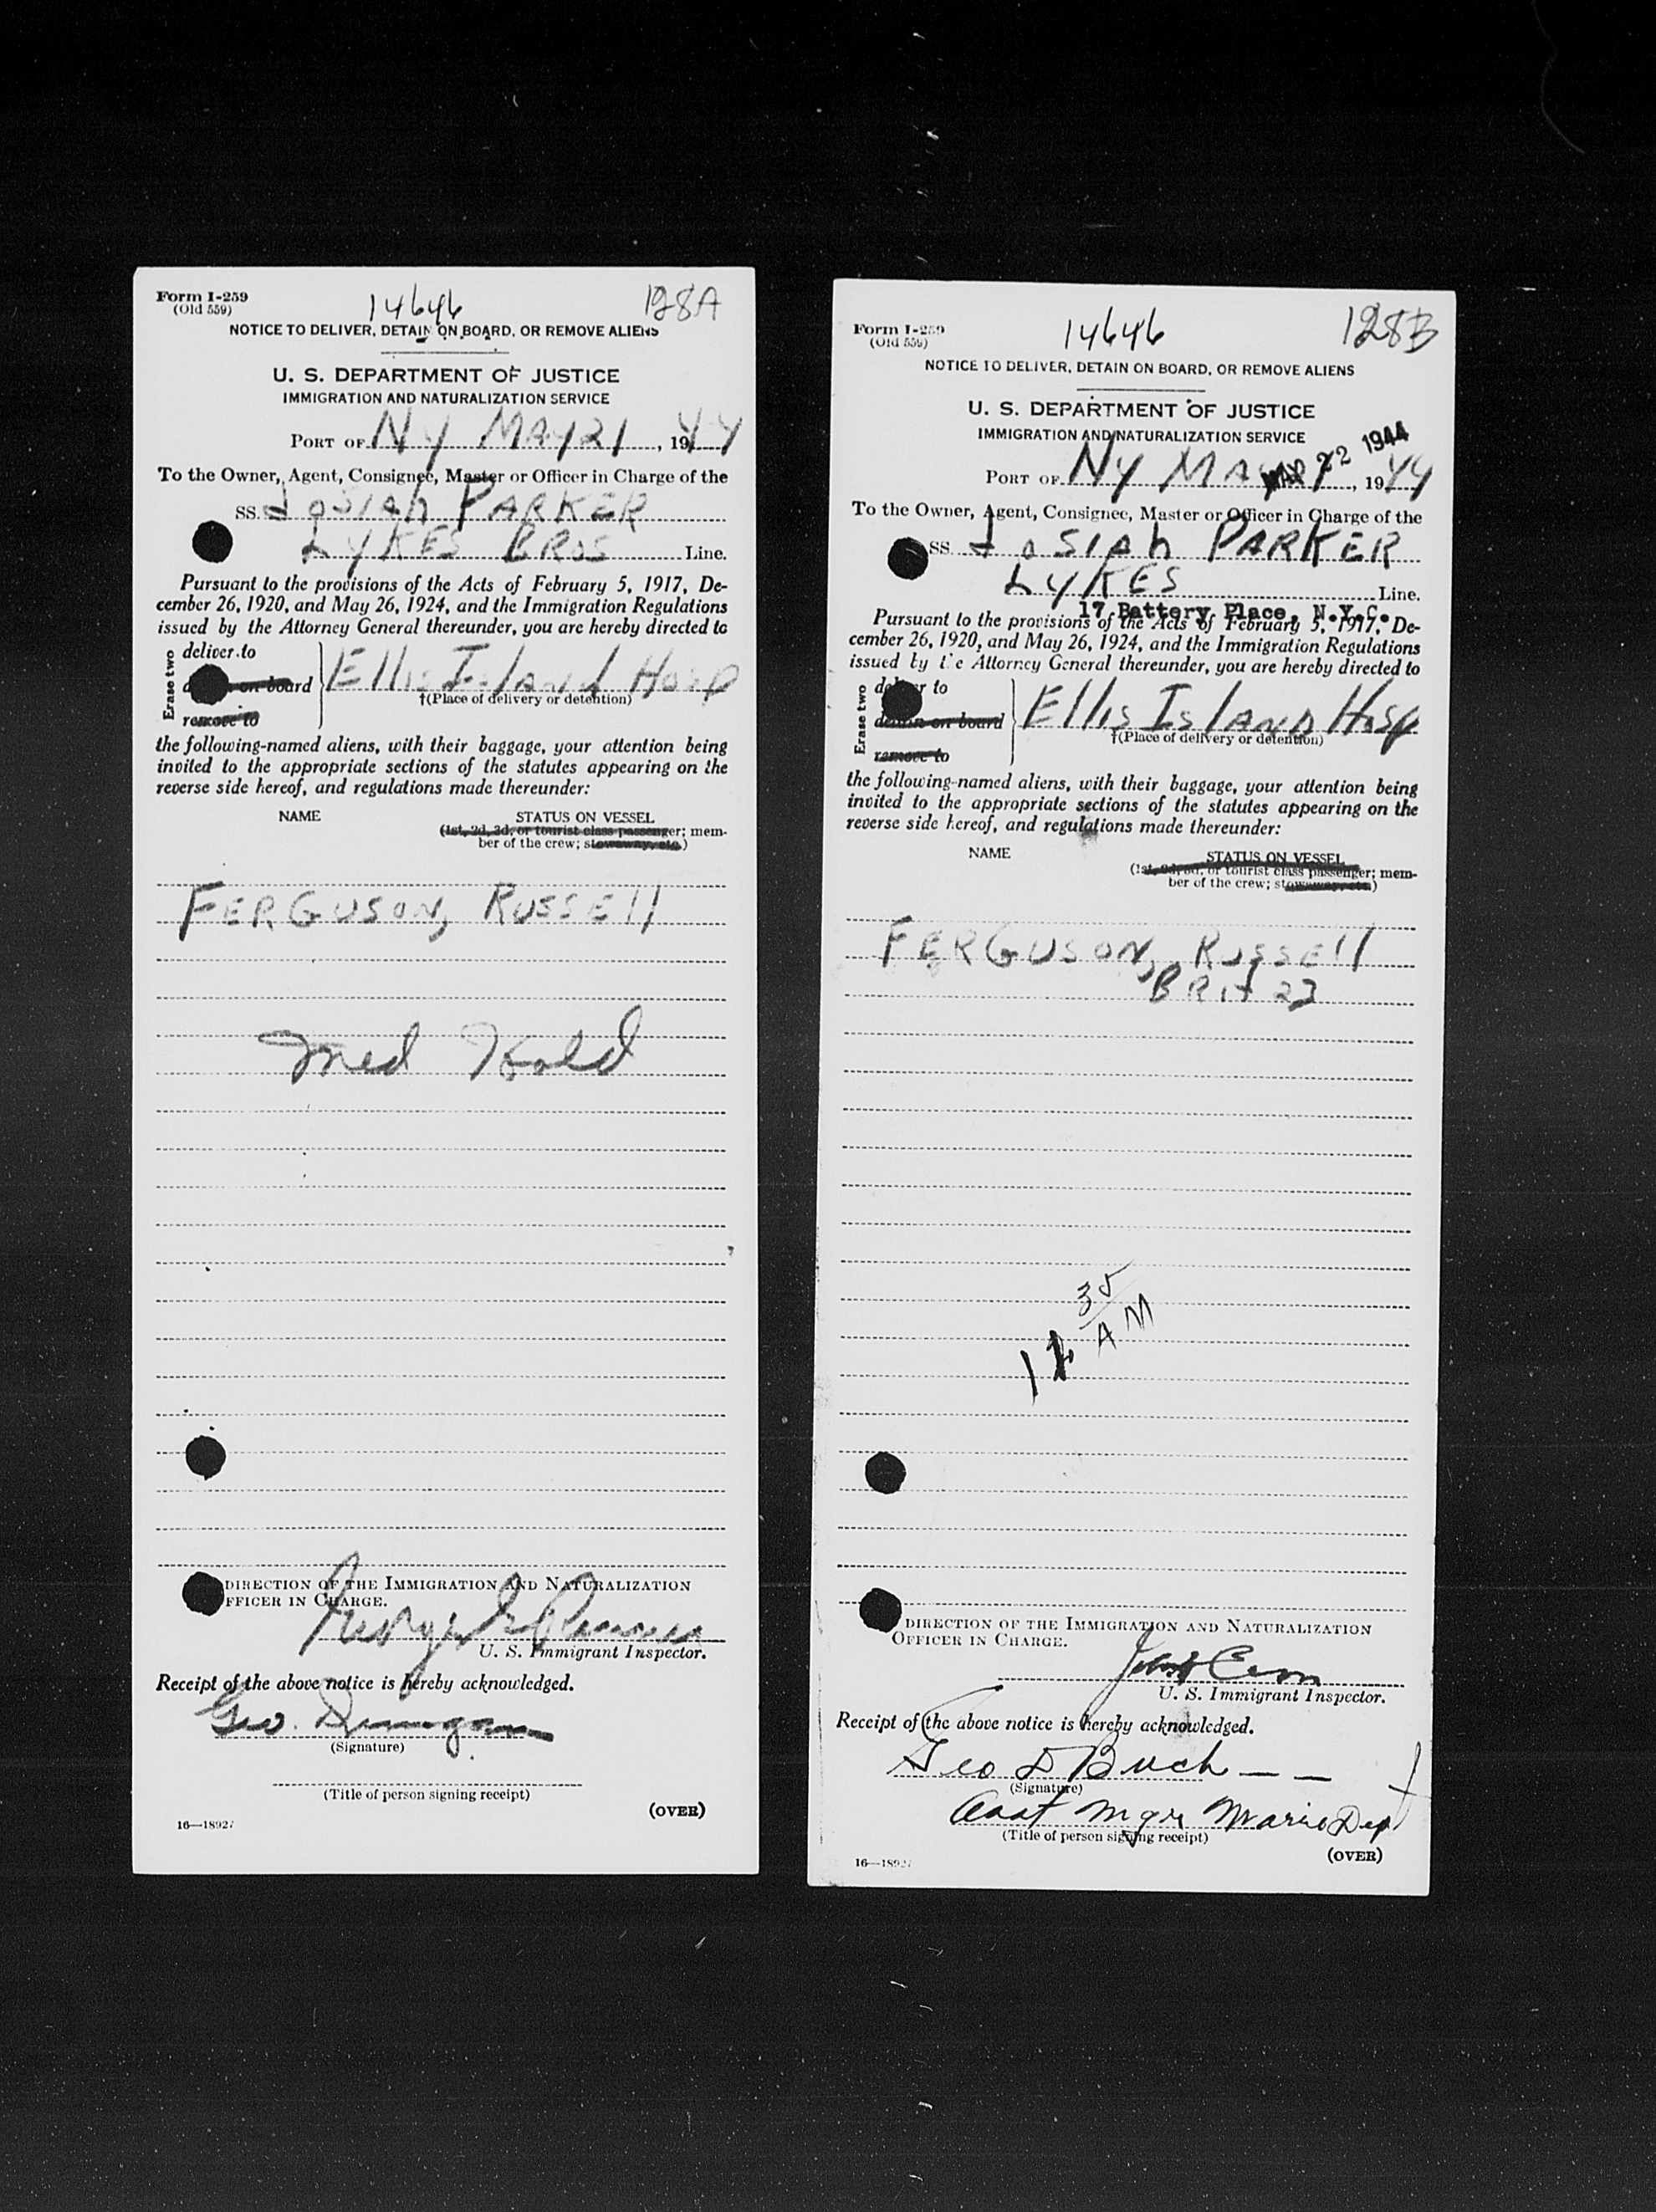 Form I-259
(Old 559)
14646
128A
NOTICE TO DELIVER, DETAIN ON BOARD, OR REMOVE ALIENS
U. S. DEPARTMENT OF JUSTICE
IMMIGRATION AND NATURALIZATION SERVICE
PORT OF NY MAY 21, 1944
To the Owner, Agent, Consignee, Master or Officer in Charge of the
SS. Josiah PARKER
LYKES BROS Line.
Pursuant to the provisions of the Acts of February 5, 1917, De-
cember 26, 1920, and May 26, 1924, and the Immigration Regulations
issued by the Attorney General thereunder, you are hereby directed to
Erase two
deliver to
on board
remove to
Ellis Island Hosp
†(Place of delivery or detention)
the following-named aliens, with their baggage, your attention being
invited to the appropriate sections of the statutes appearing on the
reverse side hereof, and regulations made thereunder:
NAME
STATUS ON VESSEL
(1st, 2d, 3d, or tourist class passenger; mem-
ber of the crew; stowaway, etc.)
FERGUSON, RUSSEll
Med Hold
DIRECTION OF THE IMMIGRATION AND NATURALIZATION
FFICER IN CHARGE.
George
U. S. Immigrant Inspector.
Receipt of the above notice is hereby acknowledged.
Geo.
(Signature)
(Title of person signing receipt)
(OVER)
16—18927
Form I-259
(Old 559)
14646
128B
NOTICE TO DELIVER, DETAIN ON BOARD, OR REMOVE ALIENS
U. S. DEPARTMENT OF JUSTICE
IMMIGRATION AND NATURALIZATION SERVICE
22 1944
PORT OF NY , 1944
To the Owner, Agent, Consignee, Master or Officer in Charge of the
SS. Josiah PARKER
LYKES Line.
17 Battery Place, N.Y.C.
Pursuant to the provisions of the Acts of February 5, 1917, De-
cember 26, 1920, and May 26, 1924, and the Immigration Regulations
issued by the Attorney General thereunder, you are hereby directed to
Erase two
deliver to
detain on board
remove to
Ellis IslAND Hosp
†(Place of delivery or detention)
the following-named aliens, with their baggage, your attention being
invited to the appropriate sections of the statutes appearing on the
reverse side hereof, and regulations made thereunder:
NAME
STATUS ON VESSEL
(1st, 2d, 3d, or tourist class passenger; mem-
ber of the crew; stowaway, etc.)
FERGUSON, RUSSEll
BRIT 23
35
AM
DIRECTION OF THE IMMIGRATION AND NATURALIZATION
OFFICER IN CHARGE.
U. S. Immigrant Inspector.
Receipt of the above notice is hereby acknowledged.
Geo D Buch
(Signature)
Asst Mgr Marine Dept
(Title of person signing receipt)
(OVER)
16—18927